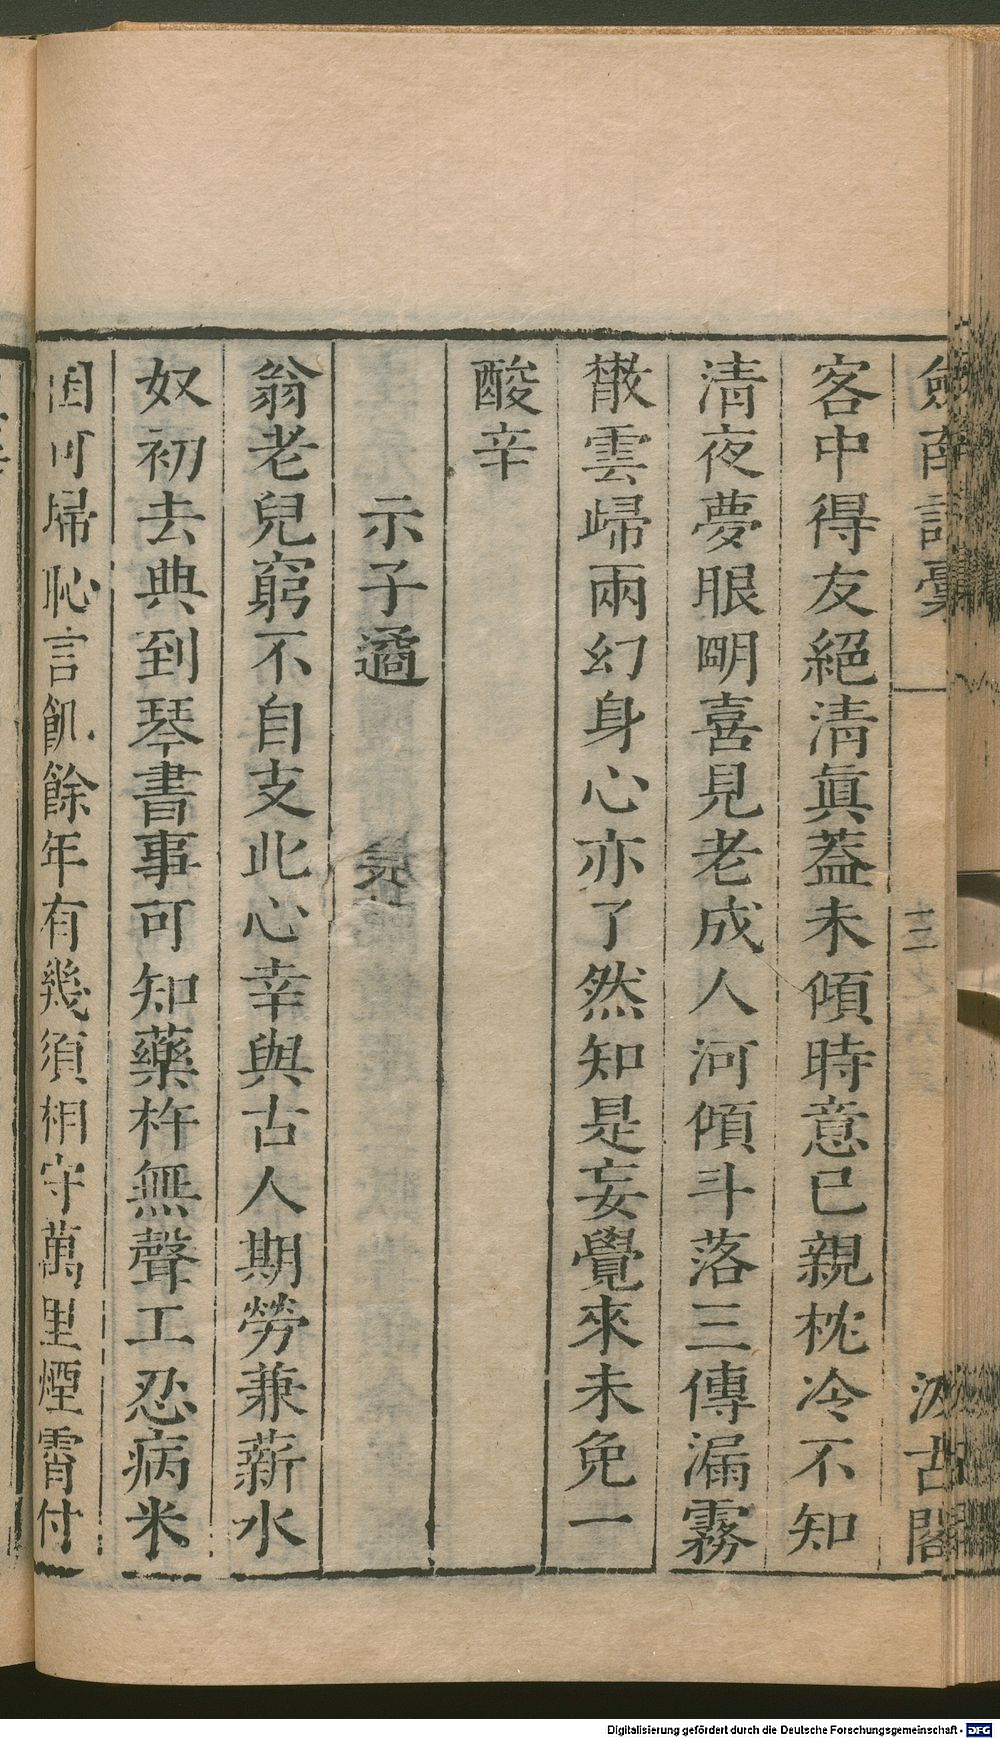 劒南詩稾 十三之六 汲古閣
客中得友絕清眞蓋未傾時意已親枕冷不知
清夜夢眼朙喜見老成人河傾斗落三傳漏霧
散雲歸兩幻身心亦了然知是妄覺來未免一
酸辛
示子遹
翁老兒窮不自支此心幸與古人期勞兼薪水
奴初去典到琴書事可知藥杵無聲工忍病米
囷可歸恥言飢餘年有幾須相守萬里煙霄付
Digitalisierung gefördert durch die Deutsche Forschungsgemeinschaft - DFG